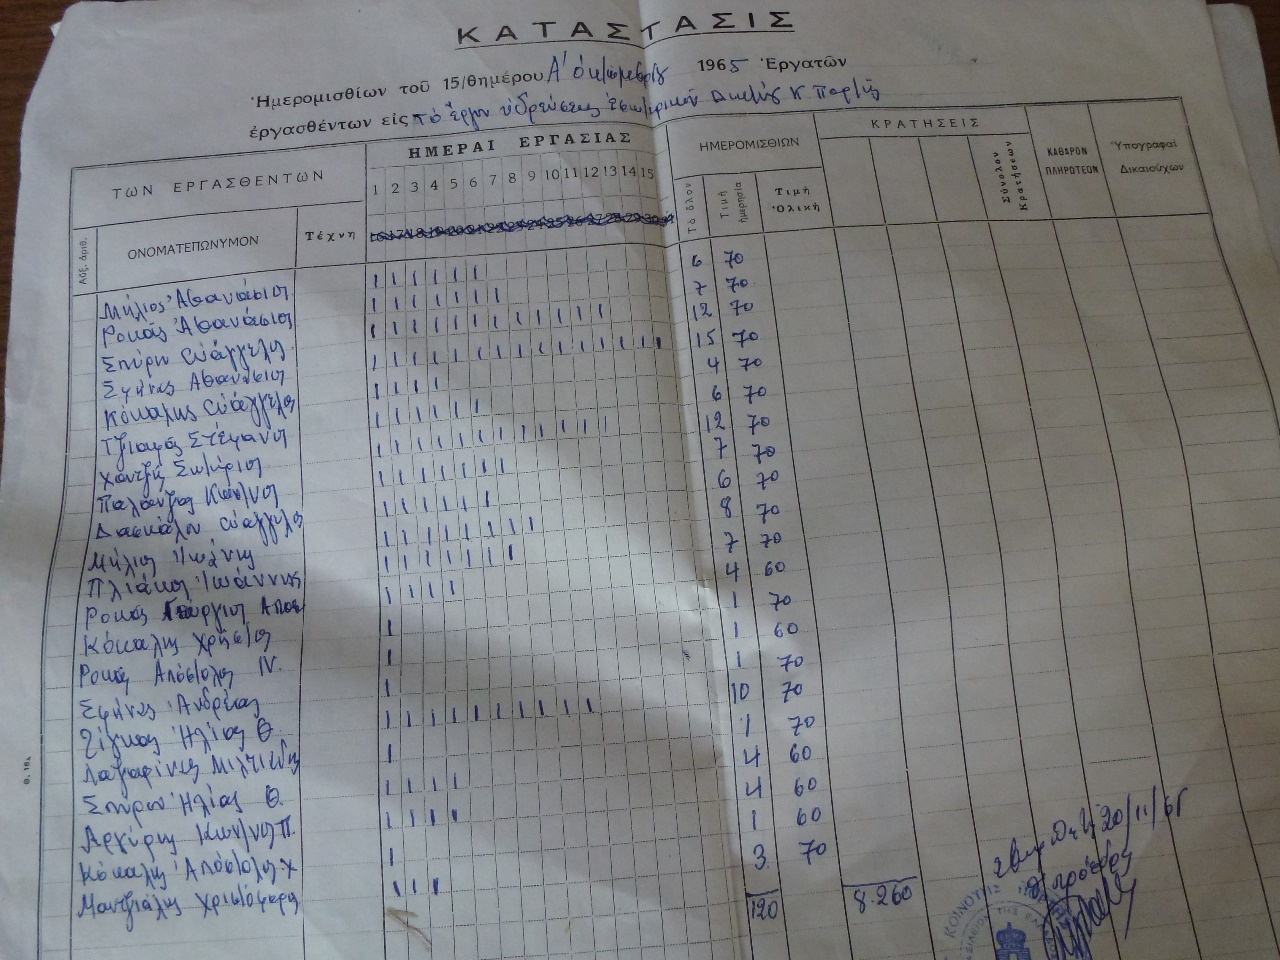 ΚΑΤΑΣΤΑΣΙΣ
Ἡμερομισθίων τοῦ 15/θημέρου Α' 1965 Ἐργατῶν
ἐργασθέντων εἰς τὸ ἔργον ὑδρεύσεως
ΤΩΝ ΕΡΓΑΣΘΕΝΤΩΝ ΗΜΕΡΑΙ ΕΡΓΑΣΙΑΣ ΗΜΕΡΟΜΙΣΘΙΩΝ ΚΡΑΤΗΣΕΙΣ ΚΑΘΑΡΟΝ ΠΛΗΡΩΤΕΟΝ Ὑπογραφαί Δικαιούχων
1 2 3 4 5 6 7 8 9 10 11 12 13 14 15
Αὔξ. ἀριθ. ΟΝΟΜΑΤΕΠΩΝΥΜΟΝ Τέχνη Τὸ ὅλον Τιμὴ ἡμερησία Τιμὴ Ὁλικὴ Σύνολον Κρατήσεων
Μήλιος Ἀθανάσιος 6 70
Ροκάς Ἀθανάσιος 7 70
Σπύρου Εὐάγγελος 12 70
Ἀθανάσιος 15 70
Κόκαλης Εὐάγγελος 4 70
Στέφανος 6 70
Χαντζῆς Σωτήριος 12 70
Κων/νος 7 70
Δασκάλου Εὐάγγελος 6 70
Μήλιος Ἰωάννης 8 70
Πλιάκος Ἰωάννης 7 70
Ροκάς Γεώργιος Αποσ 4 60
Κόκαλης Χρῆστος 1 70
Ροκάς Απόστολος Ν. 1 60
Ἀνδρέας 1 70
Ζίγκος Ἠλίας Θ. 10 70
Μιλτιάδης 1 70
Σπύρου Ἠλίας Θ. 4 60
Αργύρης Κων/νος Π. 4 60
Κόκαλης Ἀπόστολος Χ 1 60
Χριστόφορος 3 70
120 8.260
20/11/65
πρόεδρος
ΚΟΙΝΟΤΗΣ